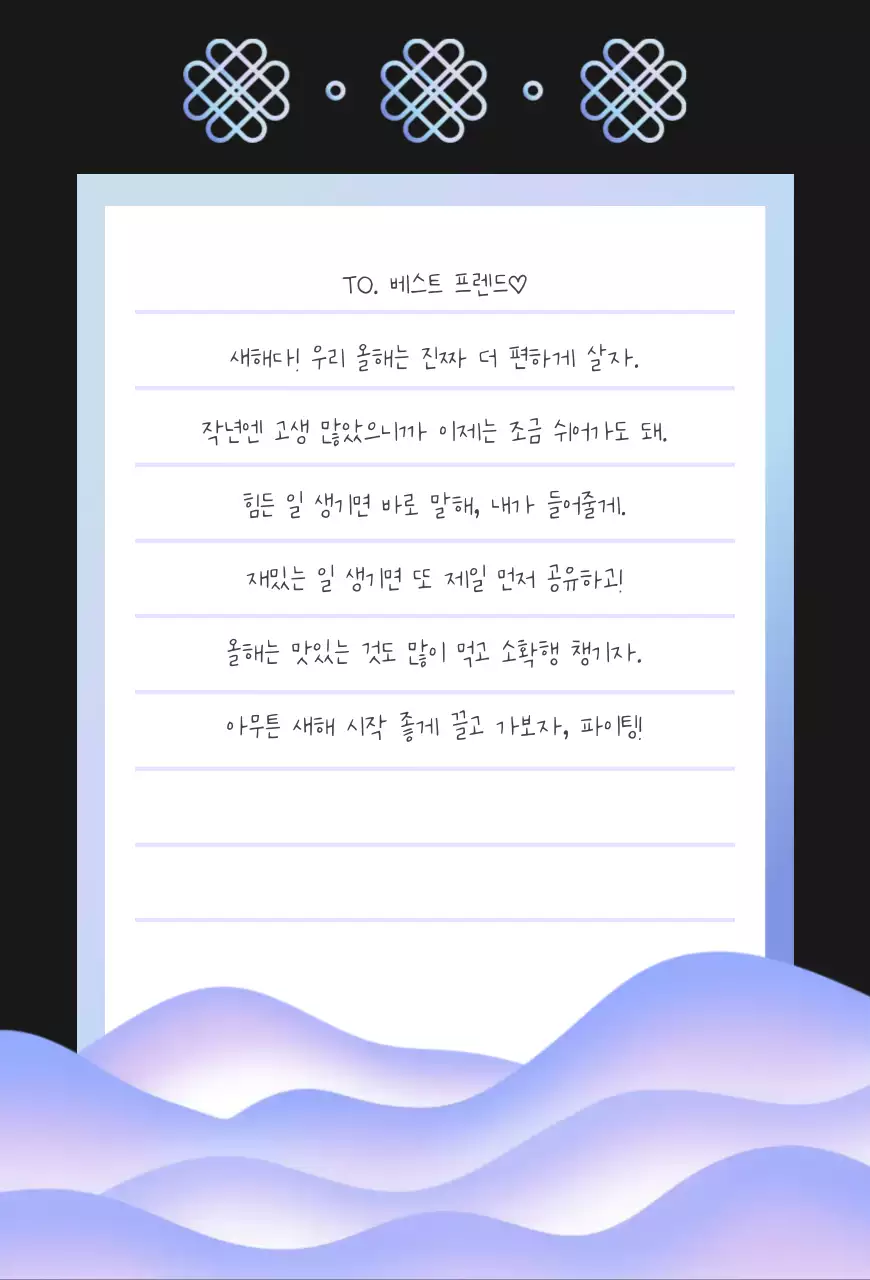 TO. 베스트 프렌드♡
새해다! 우리 올해는 진짜 더 편하게 살자.
작년엔 고생 많았으니까 이제는 조금 쉬어가도 돼.
힘든 일 생기면 바로 말해, 내가 들어줄게.
재밌는 일 생기면 또 제일 먼저 공유하고!
올해는 맛있는 것도 많이 먹고 소확행 챙기자.
아무튼 새해 시작 좋게 끌고 가보자, 파이팅!